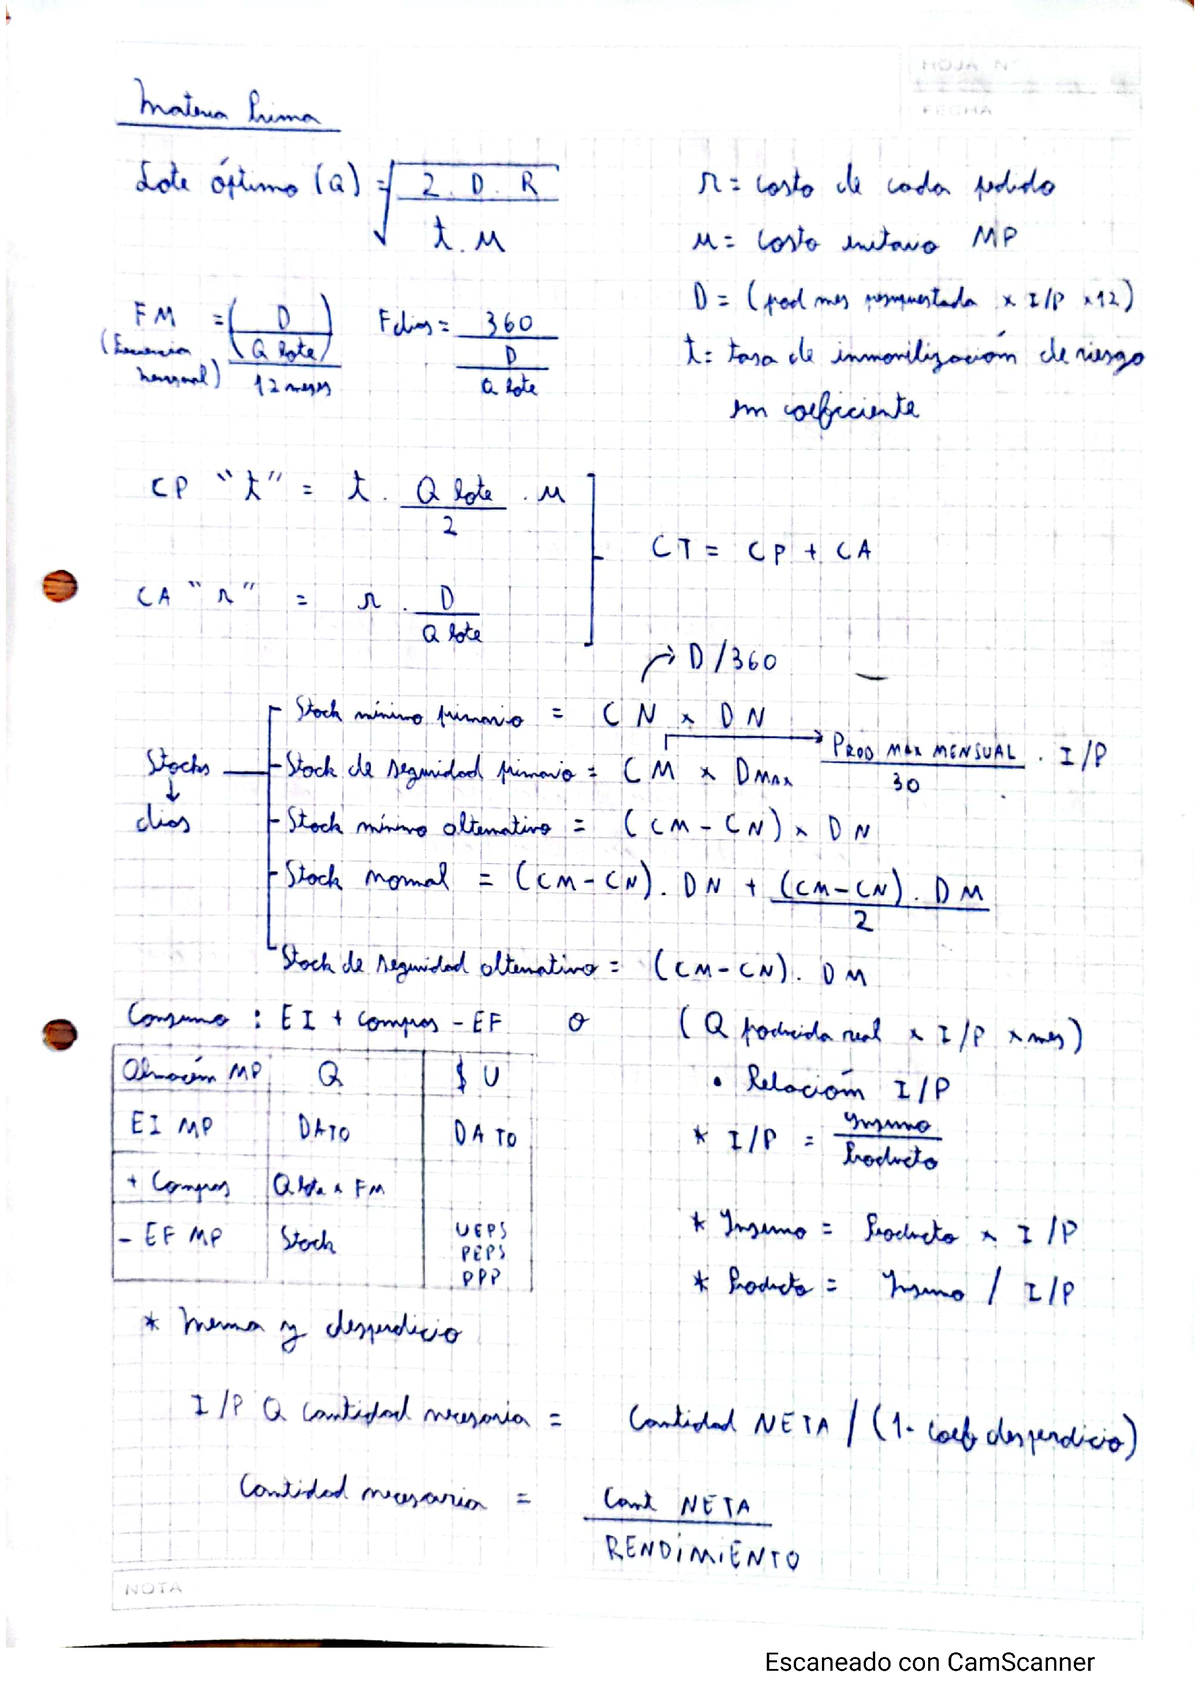 HOJA N°
FECHA
Materia Prima
Lote óptimo (Q) = √ 2 . D . R / t . u
r = costo de cada pedido
u = costo unitario MP
D = (prod mes presupuestada x I/P x12)
t = tasa de inmovilización de riesgo
en coeficiente
FM (Frecuencia mensual) = (D / Q lote) / 12 meses
F dias = 360 / (D / Q lote)
CP "t" = t . Q lote / 2 . u
CT = CP + CA
CA "r" = r . D / Q lote
→ D/360
Stocks ↓ dias
Stock mínimo primario = CN x DN
Stock de seguridad primario = CM x DMAX → PROD MAX MENSUAL / 30 . I/P
Stock mínimo alternativo = (CM - CN) x DN
Stock normal = (CM - CN) . DN + (CM - CN) . DM / 2
Stock de seguridad alternativo = (CM - CN) . DM
Consumo : EI + compras - EF o (Q producida real x I/P x mes)
Almacén MP Q $ U
EI MP DATO DATO
+ Compras Q lote x FM
- EF MP Stock UEPS PEPS PPP
• Relación I/P
* I/P = Insumo / Producto
* Insumo = Producto x I/P
* Producto = Insumo / I/P
* Merma y desperdicio
I/P Q cantidad necesaria = Cantidad NETA / (1 - coef desperdicio)
Cantidad necesaria = Cant NETA / RENDIMIENTO
NOTA
Escaneado con CamScanner